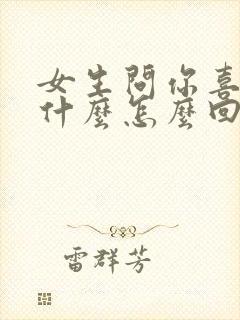 女生問你喜
什麼怎麼回
雷群芳